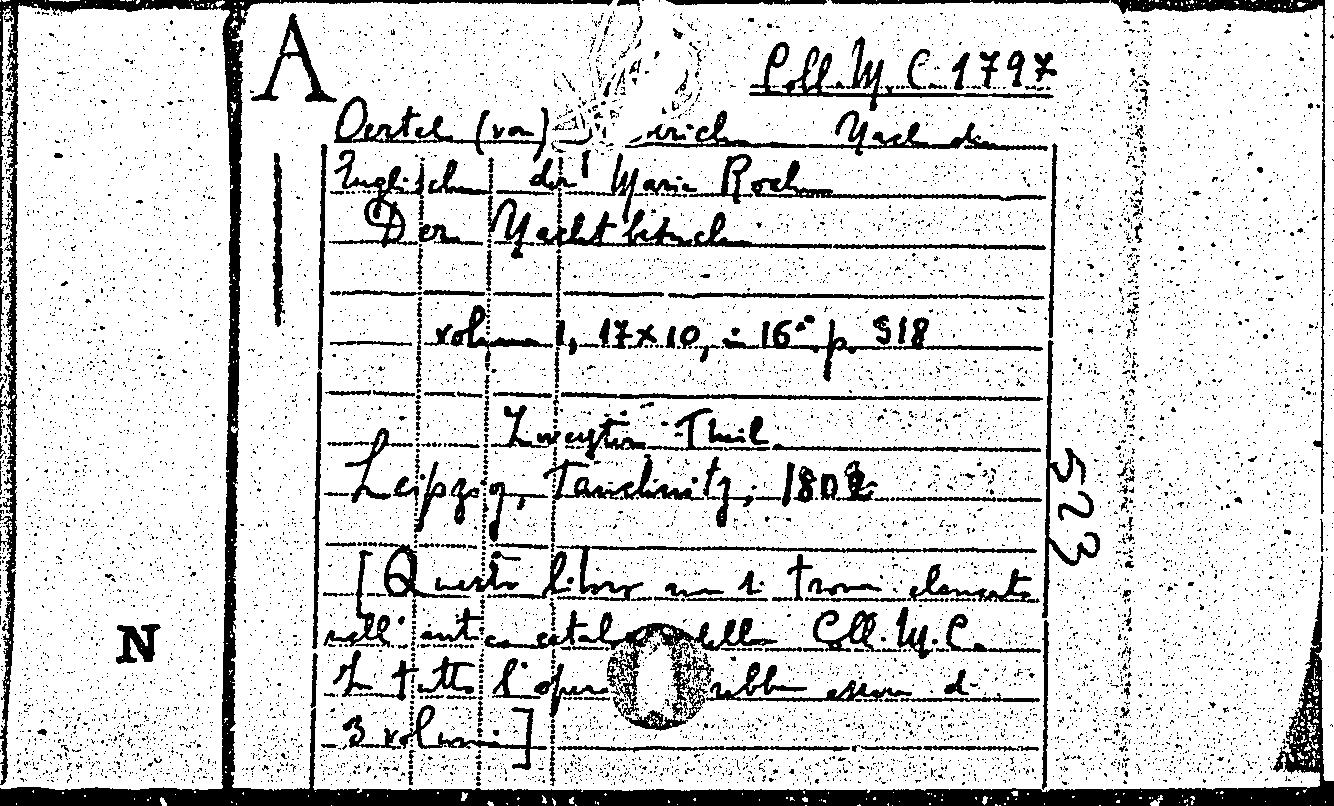 A
Coll. M. C. 1797
Oertel (von) Nach dem
Englischen der Maria Roche
Der Nachtbesuch
volume 1, 17x10, in 16° p. 318
Zweyter Theil.
Leipzig, Tauchnitz, 1802
[Questo libro non si trova elencato
nell' antico catalogo della Coll. M. C.
In tutto l'opera essere di
3 volumi]
523
N